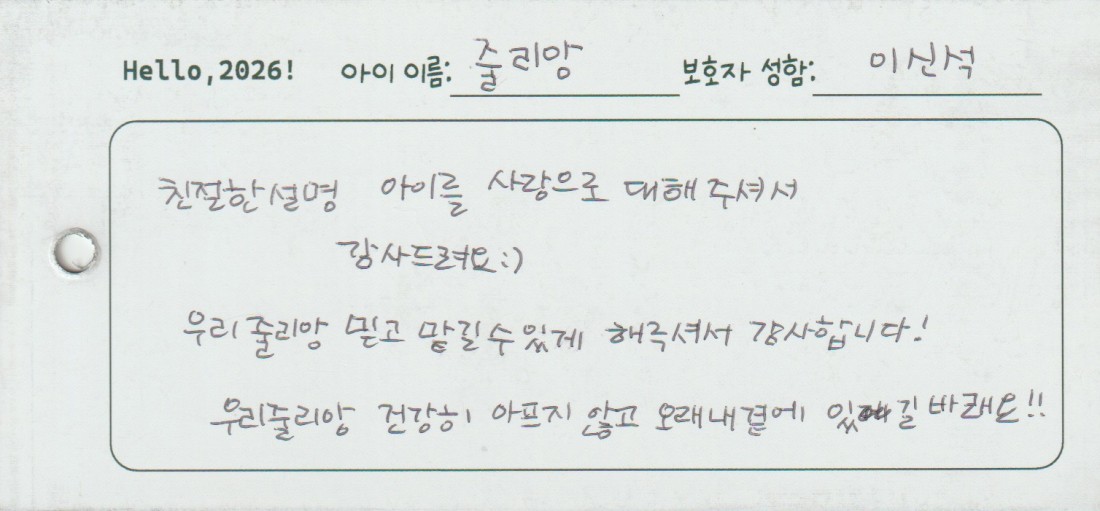 Hello,2026! 아이 이름: 줄리앙 보호자 성함: 이신석
친절한설명 아이를 사랑으로 대해주셔서
감사드려요:)
우리줄리앙 믿고 맡길수있게 해주셔서 감사합니다!
우리줄리앙 건강히 아프지 않고 오래내곁에 있길바래요!!